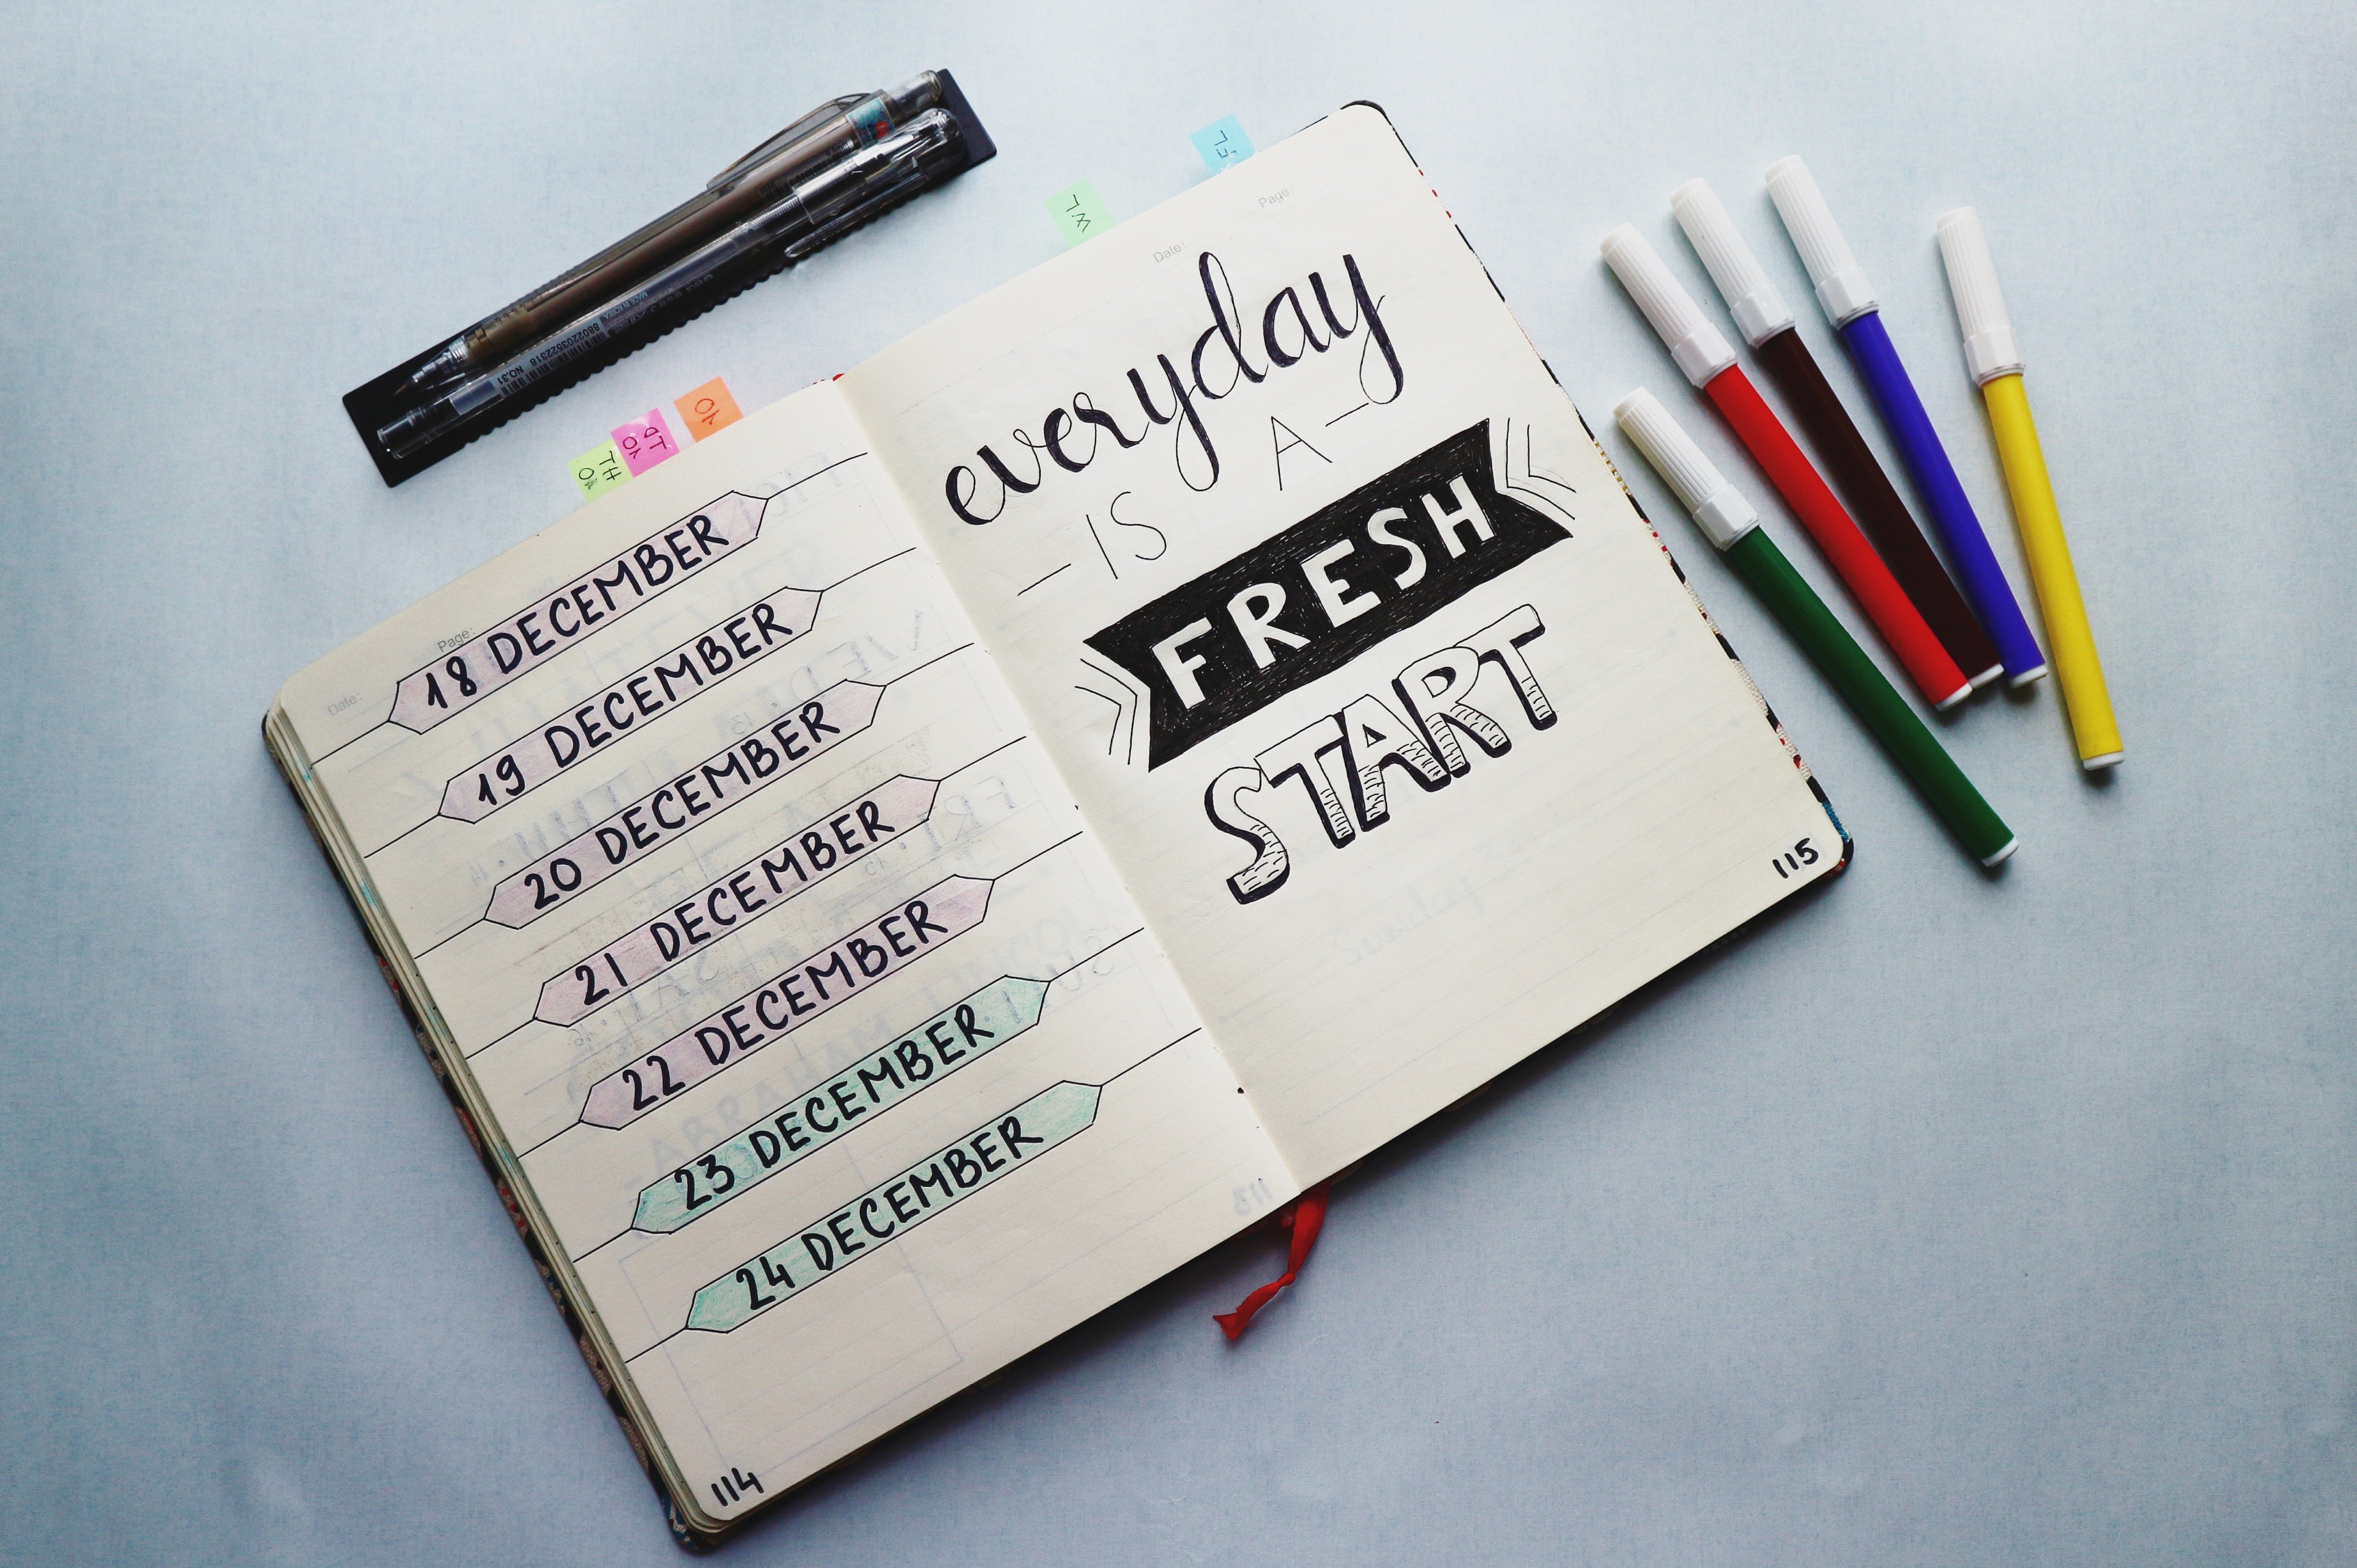 Page:
Date:
18 DECEMBER
19 DECEMBER
20 DECEMBER
21 DECEMBER
22 DECEMBER
23 DECEMBER
24 DECEMBER
114
Date:
Page:
everyday
IS A
FRESH
START
115
8802203522318
NO.31